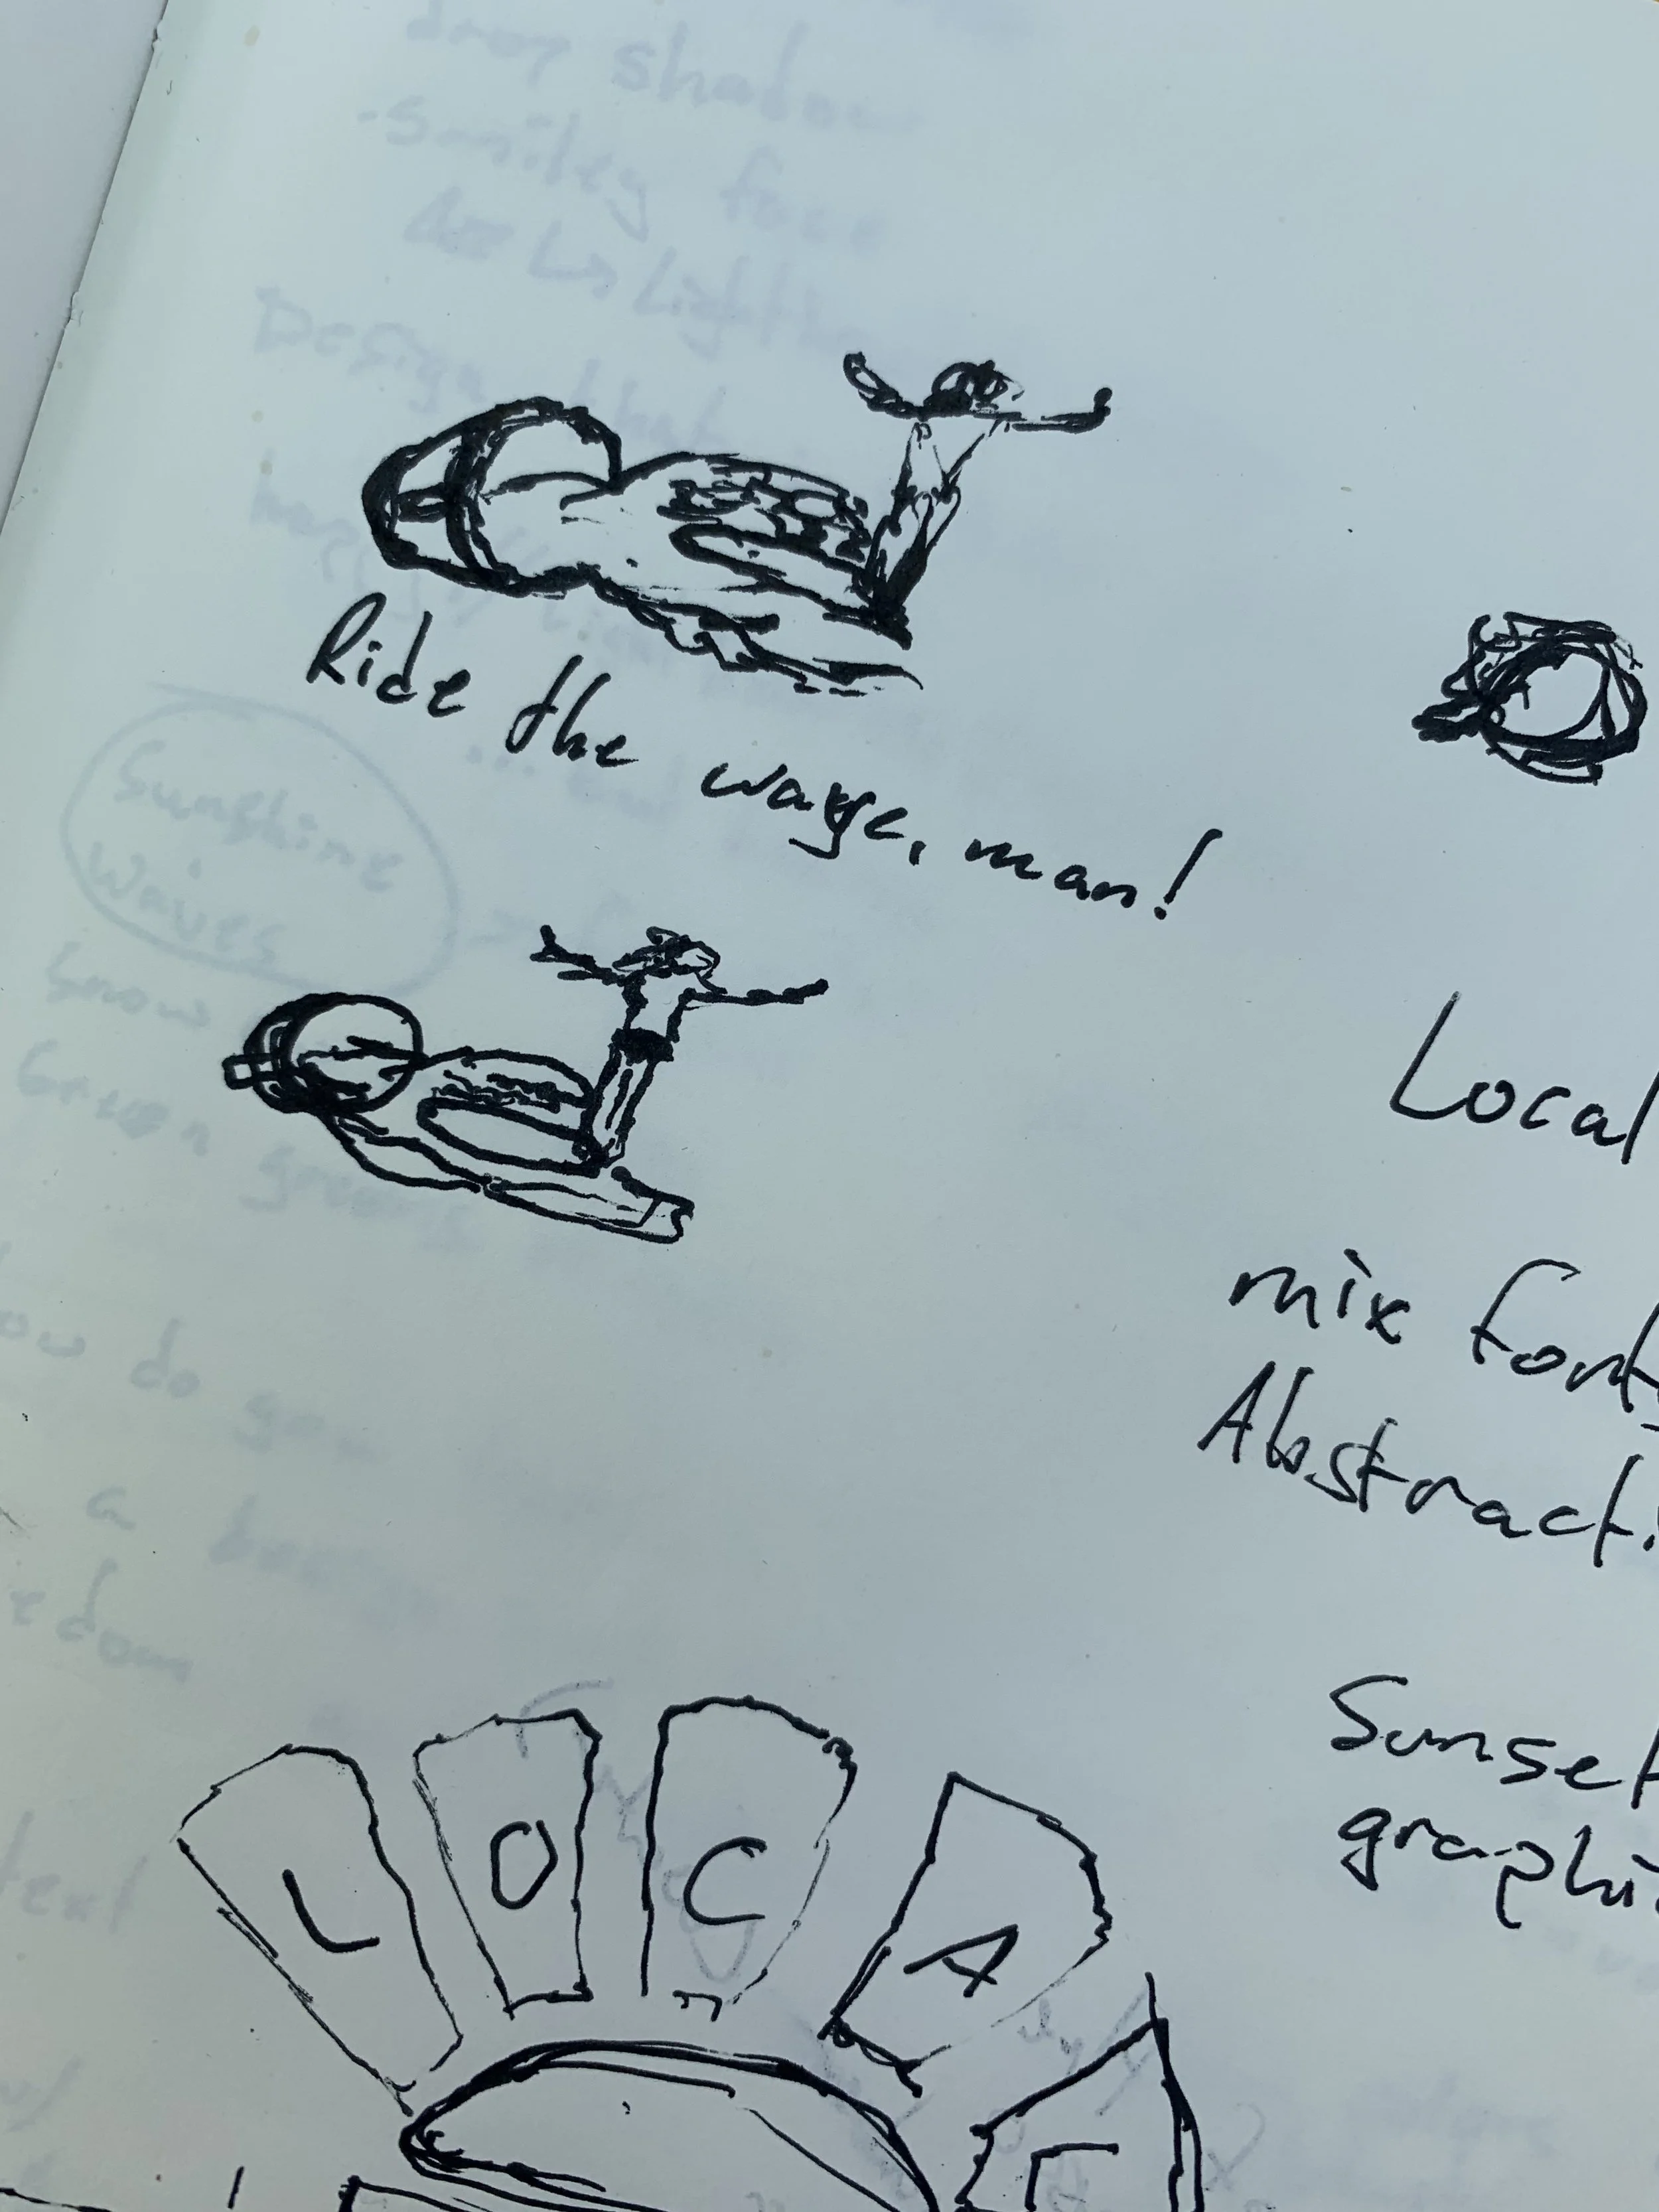 drop shadow
-Smiley face
Design that
Ride the wave, man!
Sunshine
Waves
Local
mix fonts
Abstract
Sunset
graphi
do you
a
text
L O C A L